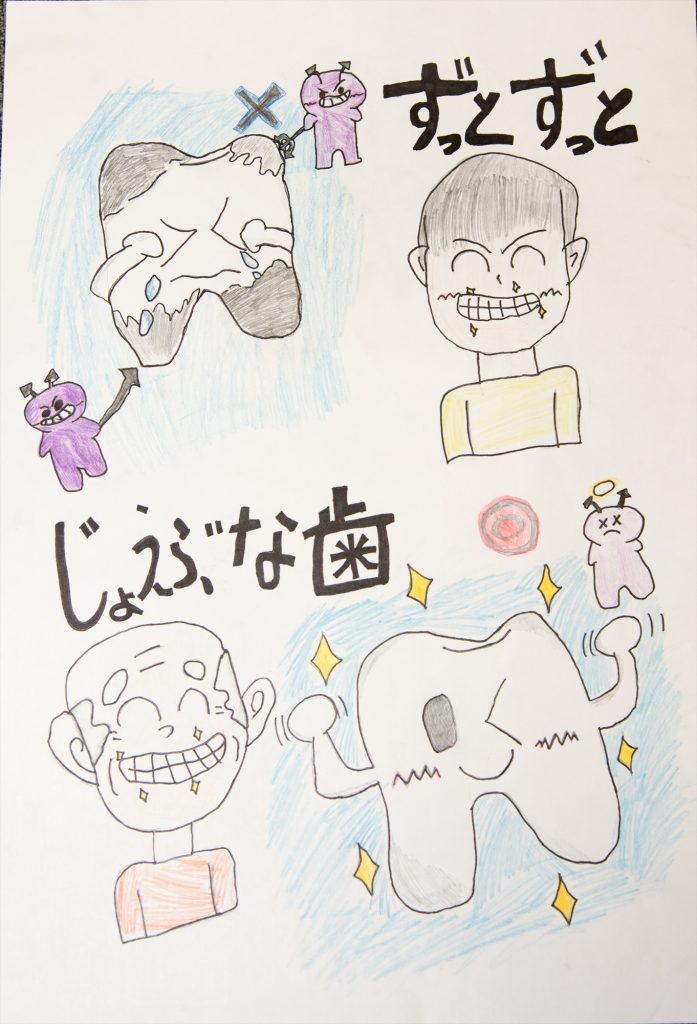 ずっとずっと
じょうぶな歯